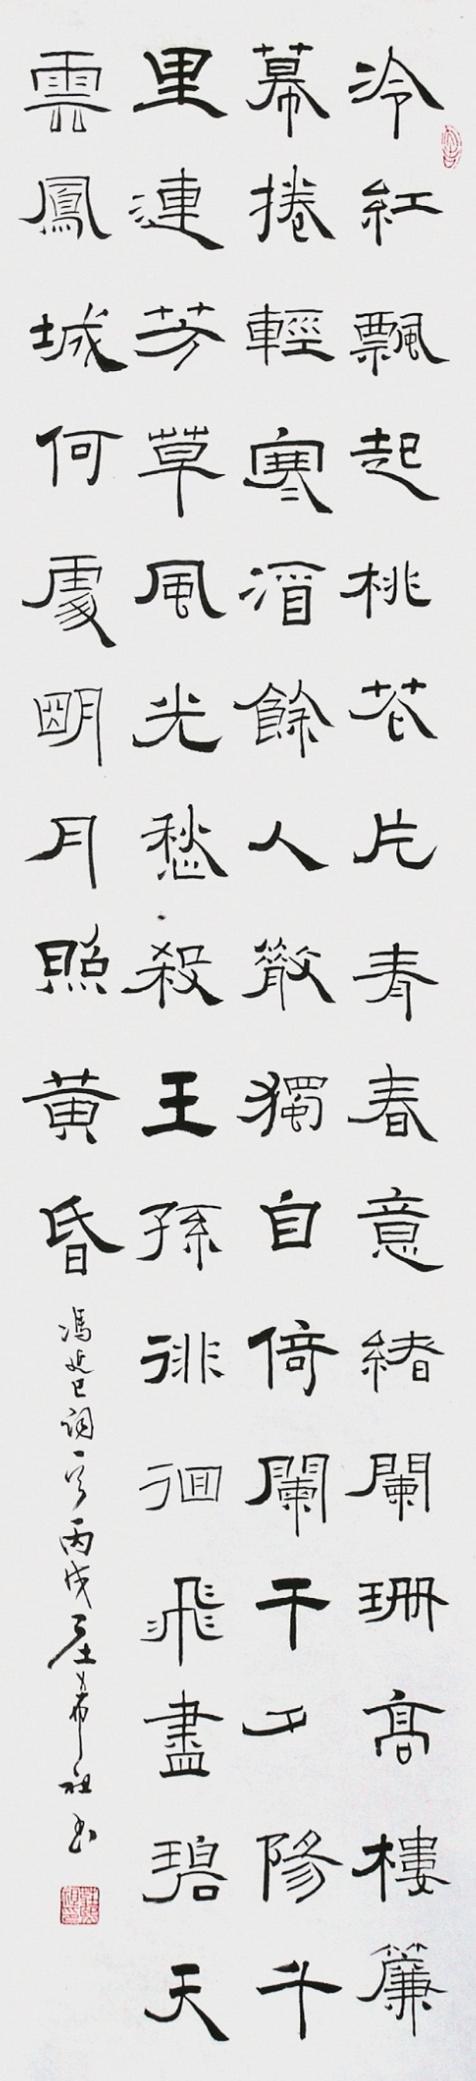 冷紅飄起桃花片青春意緒闌珊高樓簾
幕捲輕寒酒餘人散獨自倚闌干夕陽千
里連芳草風光愁殺王孫徘徊飛盡碧天
雲鳳城何處明月照黄昏
馮延巳詞一首丙戌庄希祖书